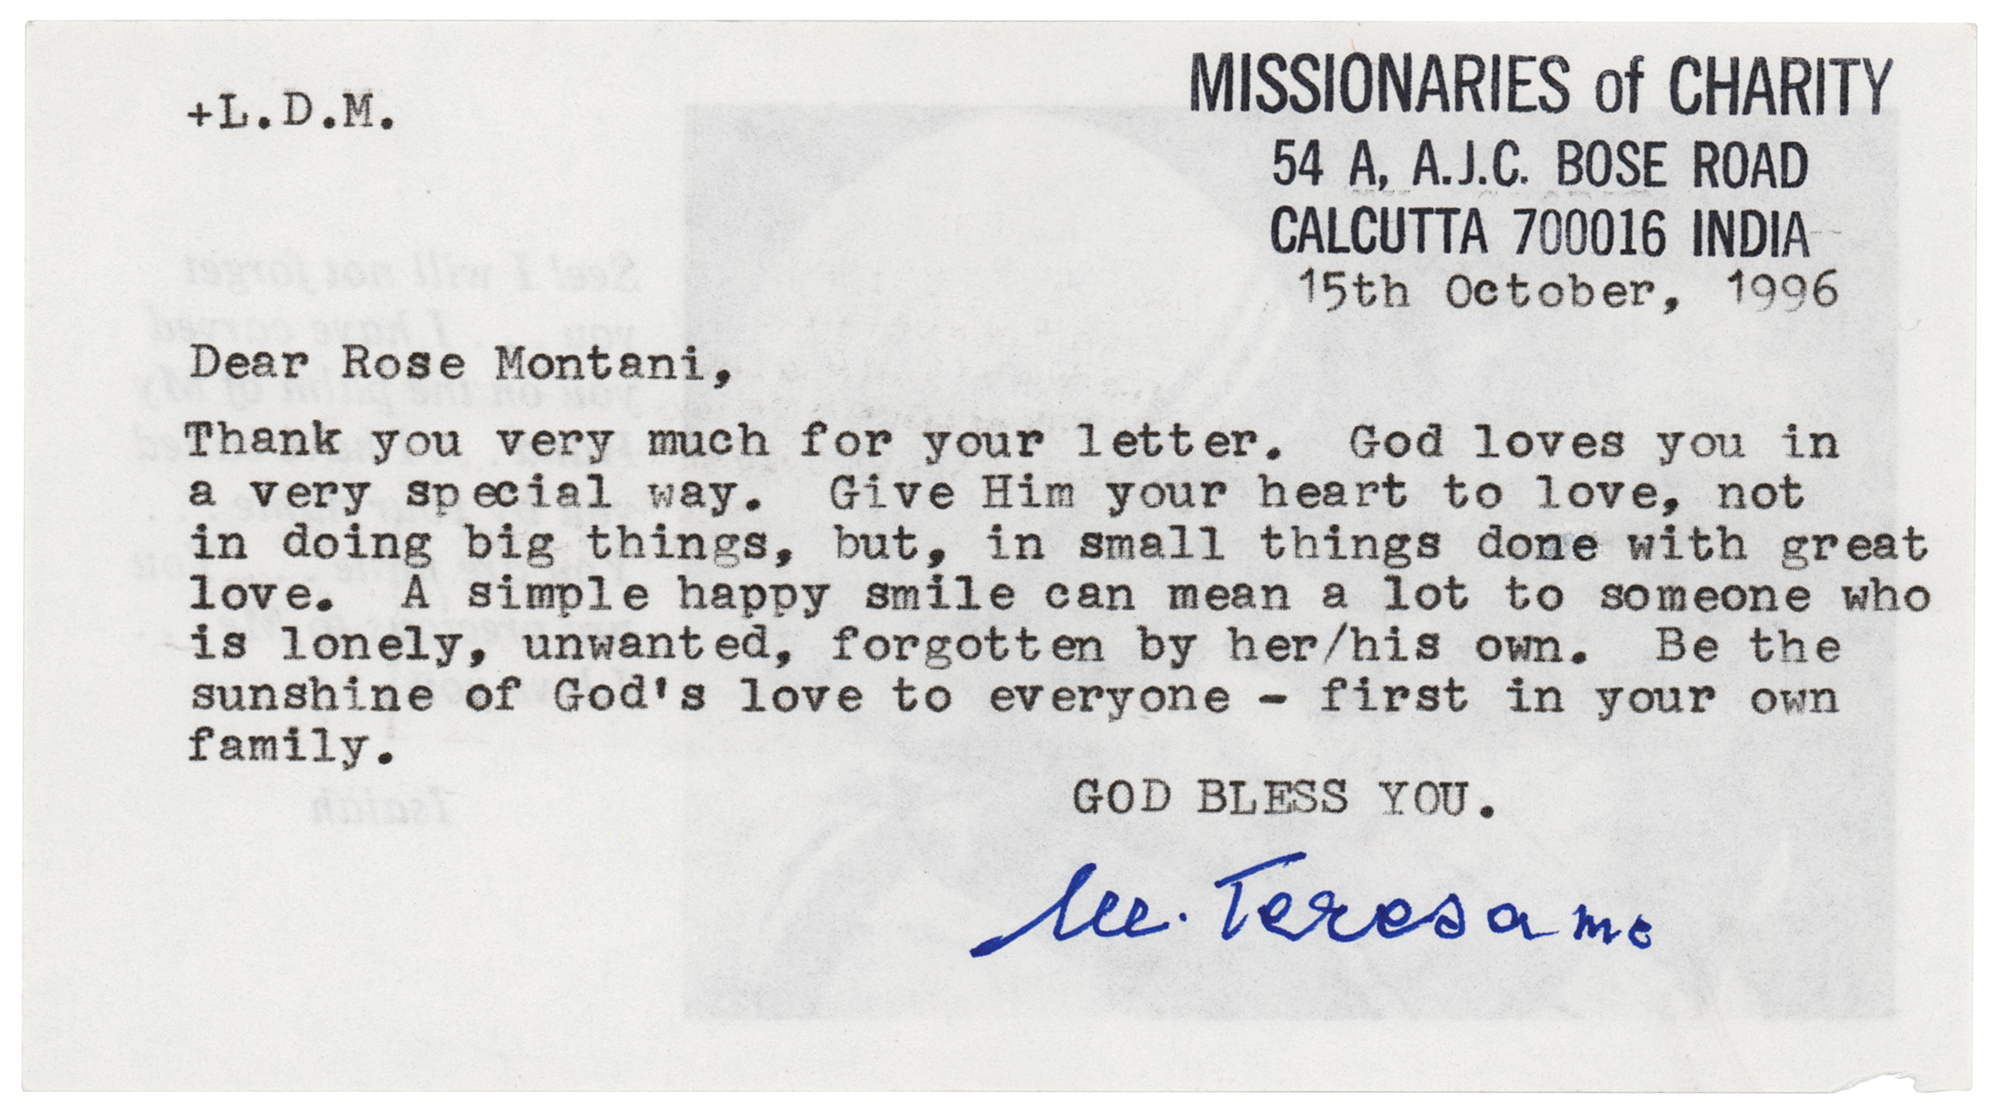 +L.D.M.
MISSIONARIES of CHARITY
54 A, A.J.C. BOSE ROAD
CALCUTTA 700016 INDIA
15th October, 1996
Dear Rose Montani,
Thank you very much for your letter. God loves you in
a very special way. Give Him your heart to love, not
in doing big things, but, in small things done with great
love. A simple happy smile can mean a lot to someone who
is lonely, unwanted, forgotten by her/his own. Be the
sunshine of God's love to everyone - first in your own
family.
GOD BLESS YOU.
M. Teresa mc
See! I will not forget
you ... I have carved
you on the palm of My
Isaiah